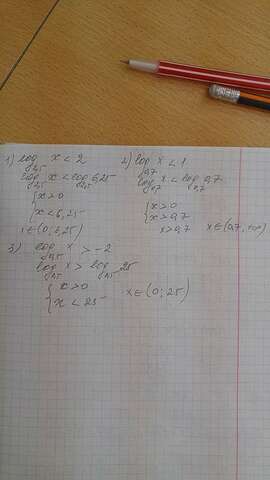 1) log₂,₅ x < 2
log₂,₅ x < log₂,₅ 6,25
{ x > 0
x < 6,25
x ∈ (0; 6,25)
2) log₀,₇ x < 1
log₀,₇ x < log₀,₇ 0,7
{ x > 0
x > 0,7
x > 0,7 x ∈ (0,7; +∞)
3) x > -2
x > 25
{ x > 0
x < 25 x ∈ (0; 25)